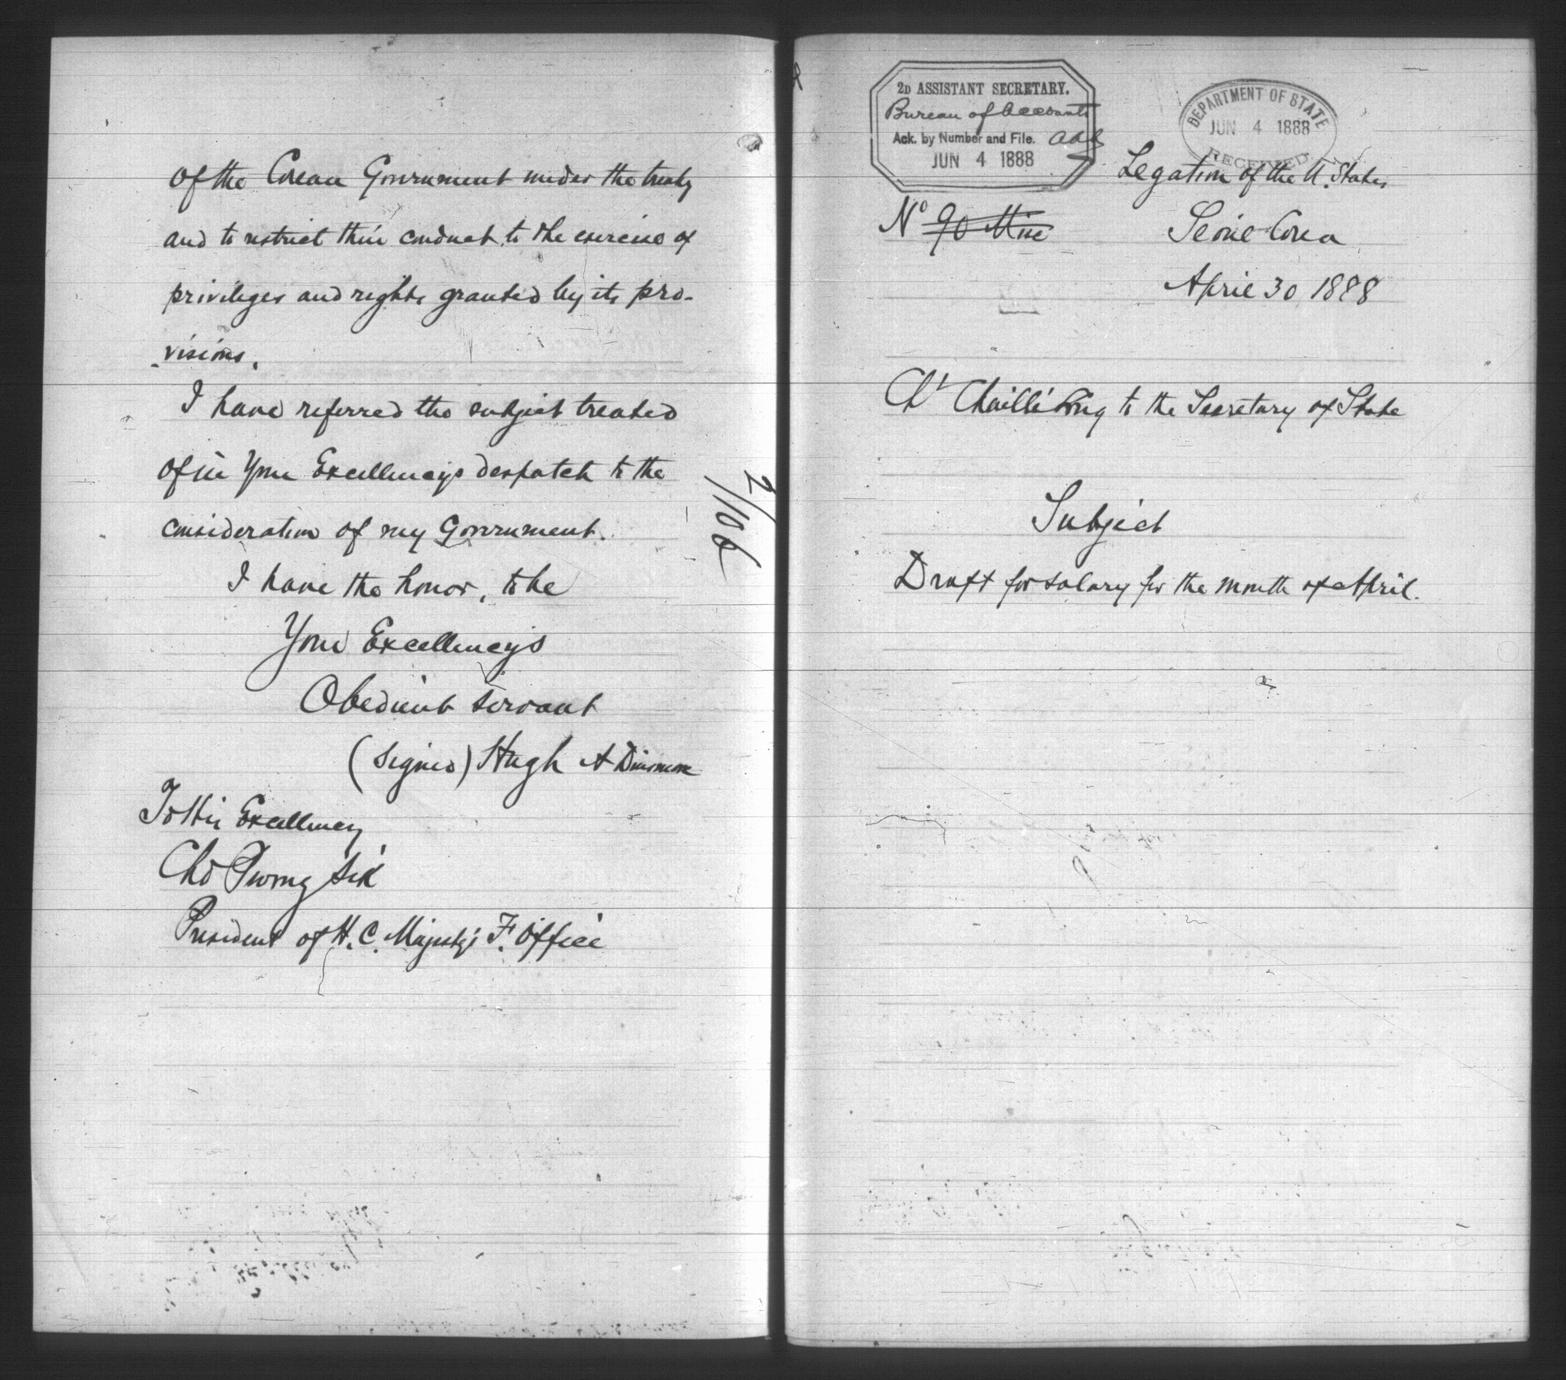 of the Corean Government under the treaty
and to restrict their conduct to the exercise of
privileges and rights granted by its pro-
visions.
I have referred the subject treated
of in Your Excellency's despatch to the
consideration of my Government.
I have the honor, to be
Your Excellency's
Obedient servant
(signed) Hugh A Dinsmore
To His Excellency
Cho Pyong Sik
President of H. C. Majesty's F. Office
2D ASSISTANT SECRETARY.
Bureau of Accounts
Ack. by Number and File.
JUN 4 1888
DEPARTMENT OF STATE
JUN 4 1888
RECEIVED
Legation of the U. States
No 90
Seoul Corea
April 30 1888
Chaillé Long to the Secretary of State
Subject
Draft for salary for the month of April.